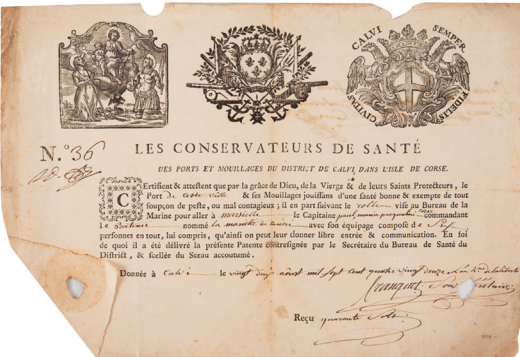 CIVITAS CALVI SEMPER FIDELIS
N.º 36
LES CONSERVATEURS DE SANTÉ
DES PORTS ET MOUILLAGES DU DISTRICT DE CALVI, DANS L'ISLE DE CORSE.
CErtifient & attestent que par la grâce de Dieu, de la Vierge & de leurs Saints Protecteurs, le
Port de cette ville & ses Mouillages jouissans d'une santé bonne & exempte de tout
soupçon de peste, ou mal contagieux ; il en part suivant le visé au Bureau de la
Marine pour aller à marseille le Capitaine commandant
le nommé la avec son équipage composé de
personnes en tout, lui compris, qu'ainsi on peut leur donner libre entrée & communication. En foi
de quoi il a été délivré la présente Patente contresignée par le Secrétaire du Bureau de Santé du
District, & scellée du Sceau accoutumé.
Donnée à Calvi le vingt août mil sept cent quatre vingt douze l'an 4.e de la liberté
Reçu quarante sols